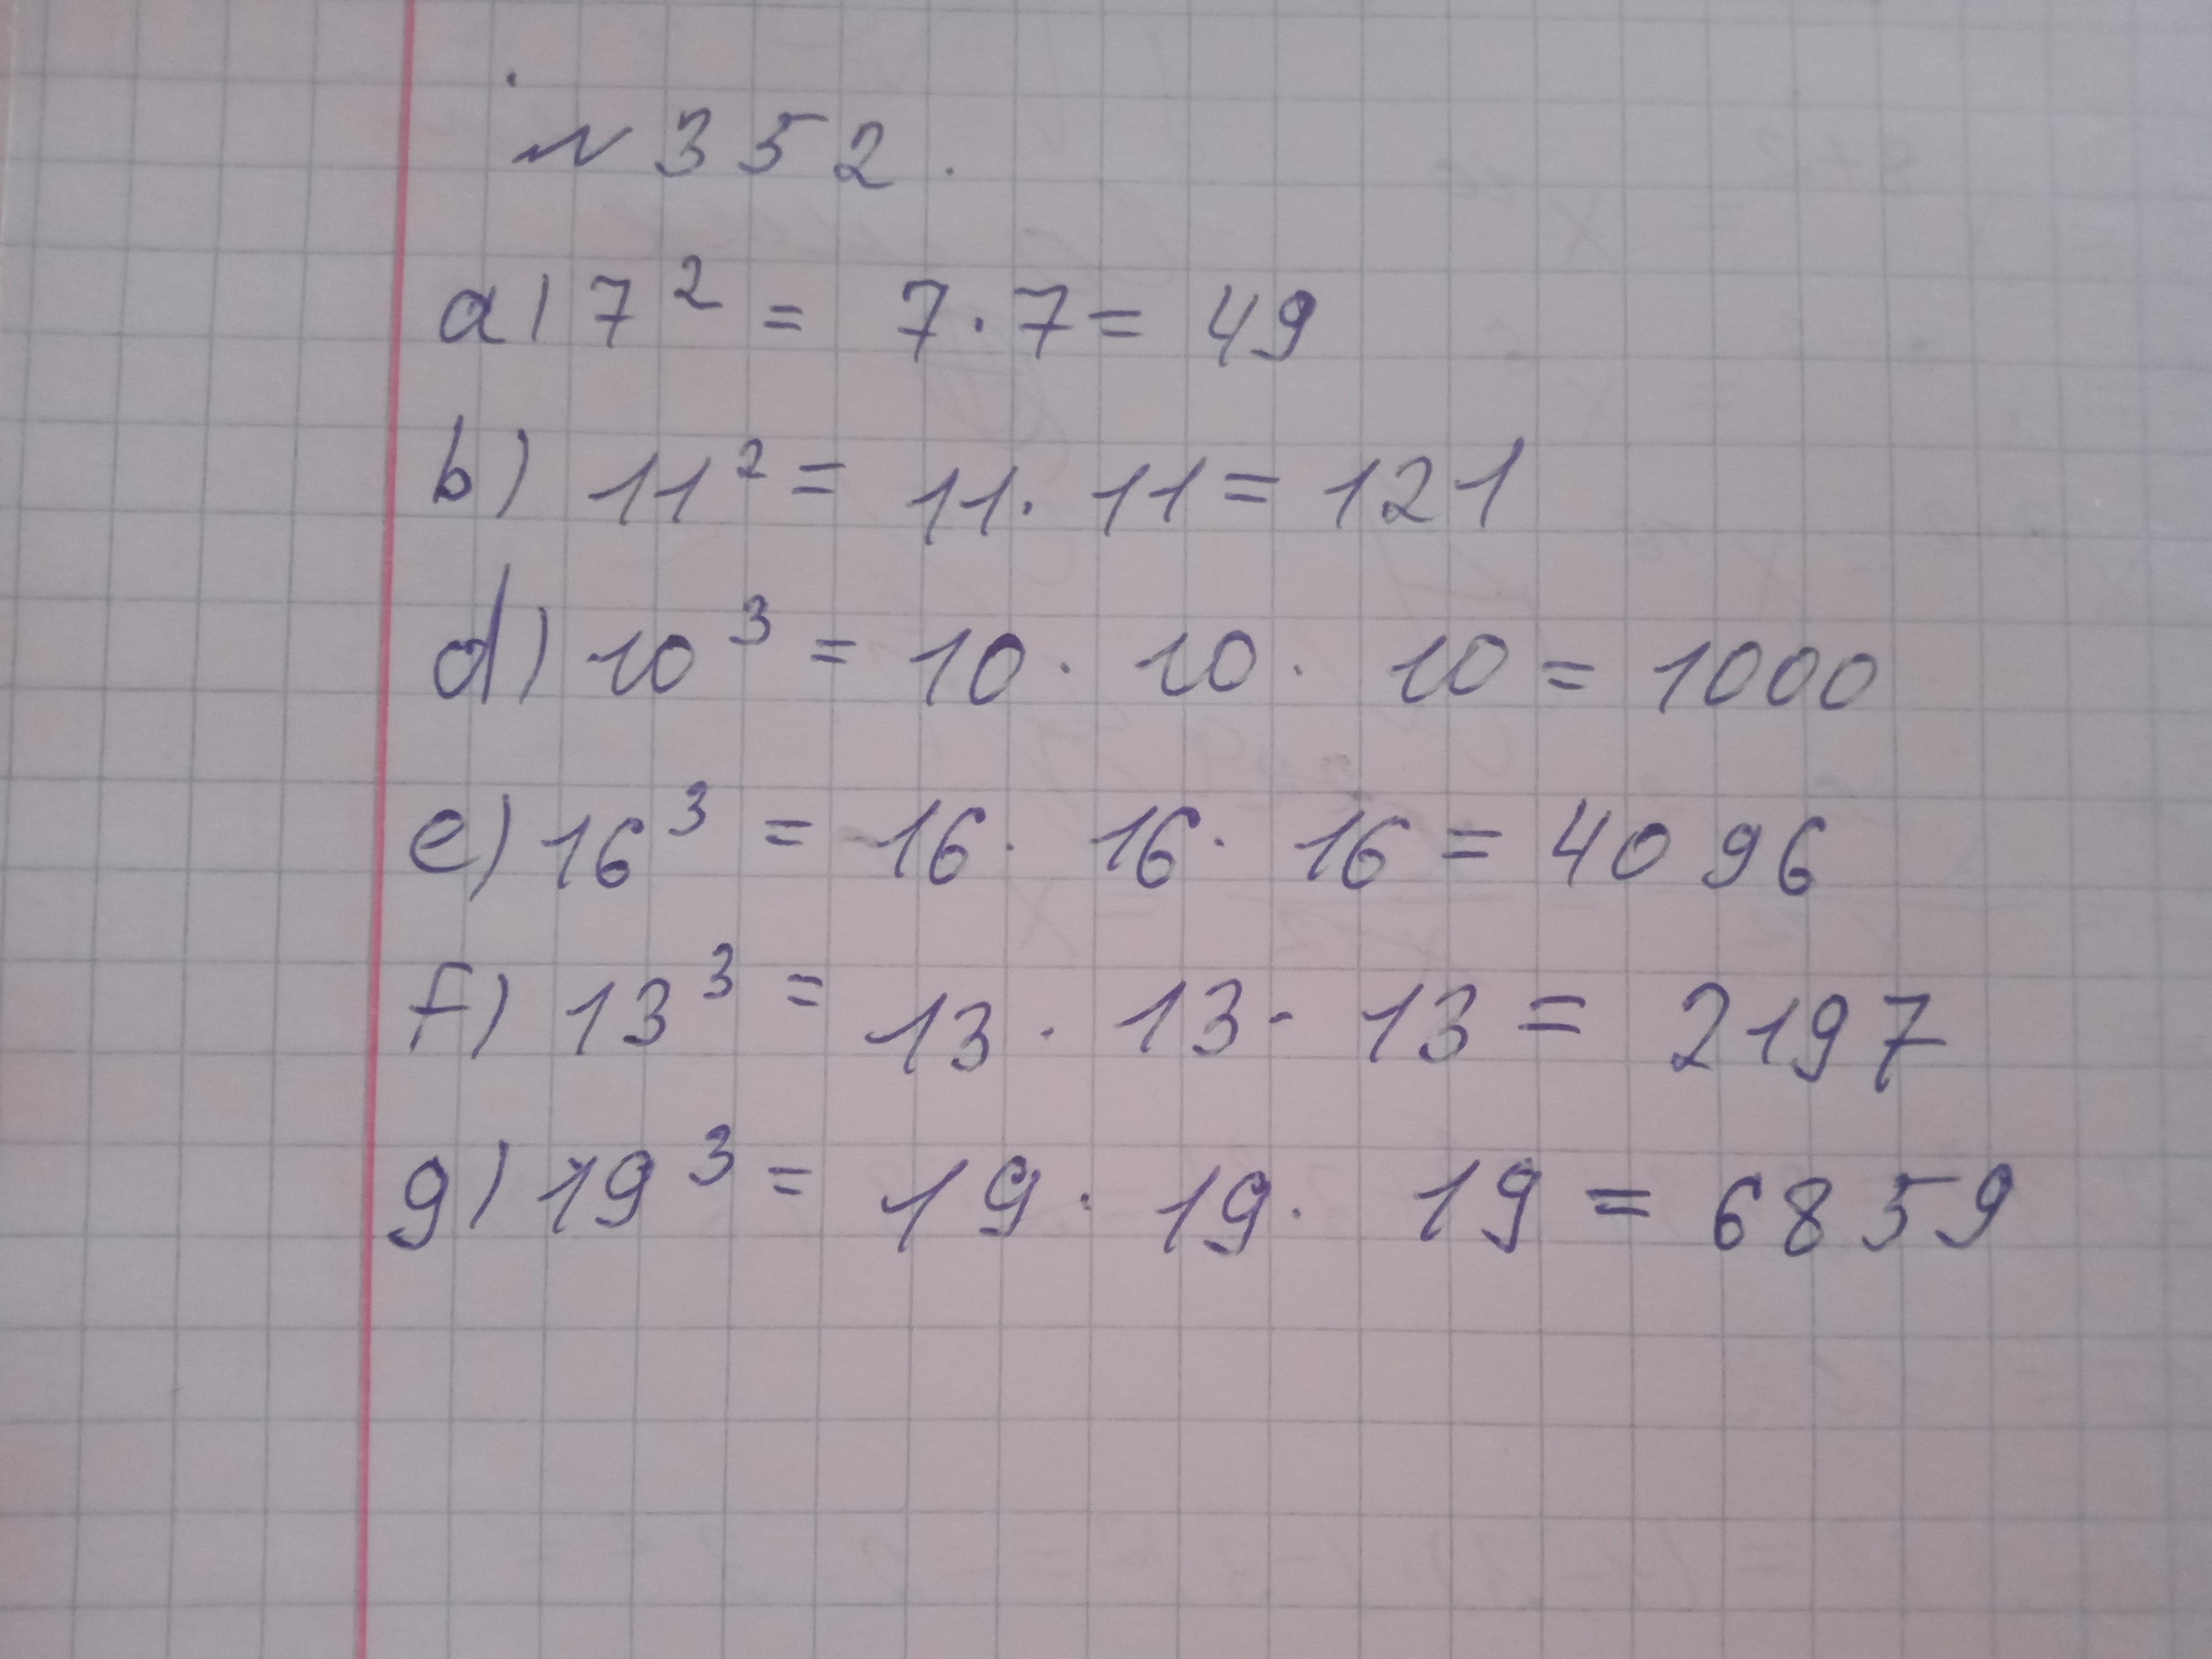 № 352.
a) 7² = 7 · 7 = 49
b) 11² = 11 · 11 = 121
d) 10³ = 10 · 10 · 10 = 1000
e) 16³ = 16 · 16 · 16 = 4096
f) 13³ = 13 · 13 · 13 = 2197
g) 19³ = 19 · 19 · 19 = 6859